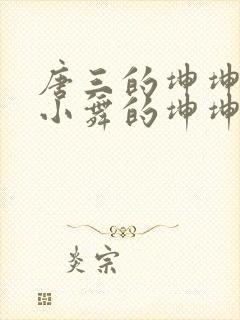 唐三的坤坤
小舞的坤坤
炎宗